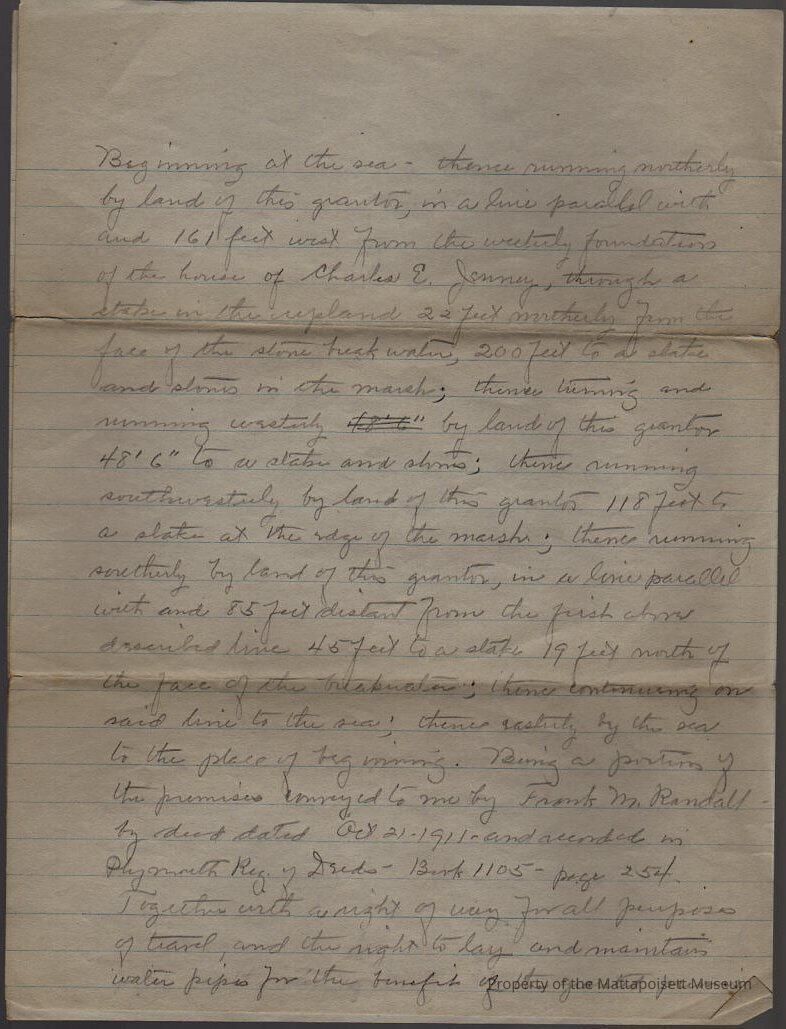 Beginning at the sea - thence running northerly
by land of this grantor, in a line parallel with
and 161 feet west from the westerly foundation
of the house of Charles E. Jenney, through a
stake in the upland 22 feet northerly from the
face of the stone breakwater, 200 feet to a stake
and stones in the marsh; thence turning and
running westerly 48' 6" by land of this grantor
48' 6" to a stake and stones; thence running
southwesterly by land of this grantor 118 feet to
a stake at the edge of the marsh; thence running
southerly by land of this grantor, in a line parallel
with and 85 feet distant from the first above
described line 45 feet to a stake 19 feet north of
the face of the breakwater; thence continuing on
said line to the sea; thence easterly by the sea
to the place of beginning. Being a portion of
the premises conveyed to me by Frank M. Randall -
by deed dated Oct 21-1911- and recorded in
Plymouth Reg. of Deeds - Book 1105 - page 254.
Together with a right of way for all purposes
of travel, and the right to lay and maintain
water pipes for the benefit of
Property of the Mattapoisett Museum